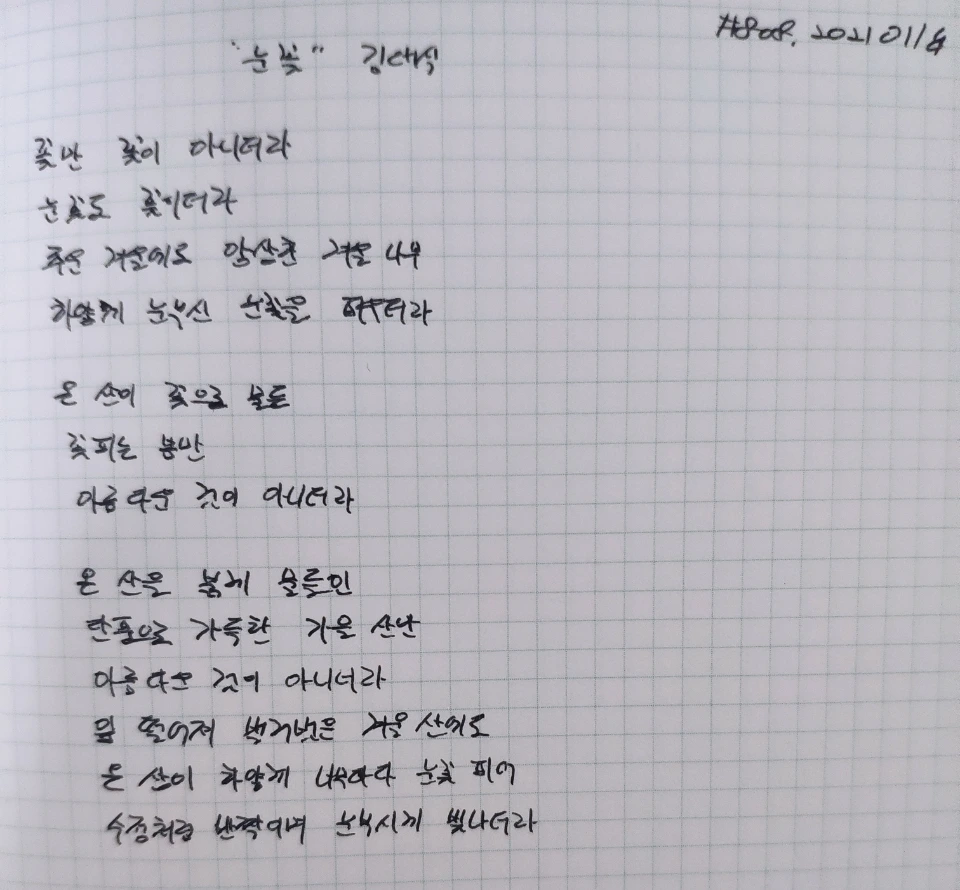 #808. 2021 01/4
"눈꽃" 김대식
꽃만 꽃이 아니더라
눈꽃도 꽃이더라
추운 겨울에도 앙상한 겨울 나무
하얗게 눈부신 눈꽃을 피우더라
온 산이 꽃으로 물든
꽃피는 봄만
아름다운 것이 아니더라
온 산을 붉게 물들인
단풍으로 가득한 가을 산만
아름다운 것이 아니더라
잎 떨어져 벌거벗은 겨울 산에도
온 산이 하얗게 나무마다 눈꽃 피어
수정처럼 반짝이며 눈부시게 빛나더라